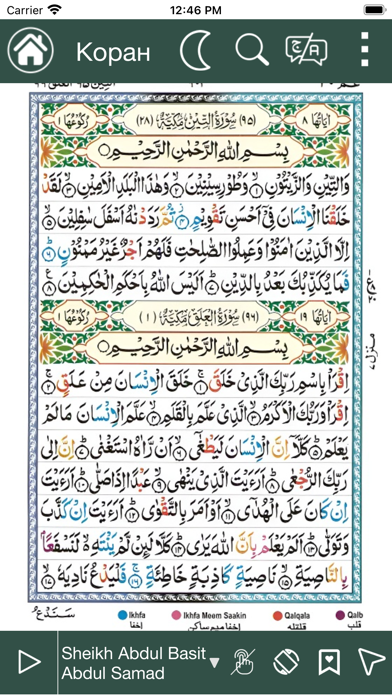 Carrier 12:46 PM
Коран
اٰیَاتُهَا ٨ (٩٥) سُوْرَةُ التِّيْنِ مَكِّيَّةٌ (٢٨) رُكُوْعُهَا ١
بِسْمِ اللّٰهِ الرَّحْمٰنِ الرَّحِيْمِ
وَالتِّيْنِ وَالزَّيْتُوْنِ ۙ﴿١﴾ وَطُوْرِ سِيْنِيْنَ ۙ﴿٢﴾ وَهٰذَا الْبَلَدِ الْاَمِيْنِ ۙ﴿٣﴾ لَقَدْ
خَلَقْنَا الْاِنْسَانَ فِيْٓ اَحْسَنِ تَقْوِيْمٍ ۫﴿٤﴾ ثُمَّ رَدَدْنٰهُ اَسْفَلَ سٰفِلِيْنَ ۙ﴿٥﴾
اِلَّا الَّذِيْنَ اٰمَنُوْا وَعَمِلُوا الصّٰلِحٰتِ فَلَهُمْ اَجْرٌ غَيْرُ مَمْنُوْنٍ ؕ﴿٦﴾
فَمَا يُكَذِّبُكَ بَعْدُ بِالدِّيْنِ ؕ﴿٧﴾ اَلَيْسَ اللّٰهُ بِاَحْكَمِ الْحٰكِمِيْنَ ﴿٨﴾
اٰیَاتُهَا ١٩ (٩٦) سُوْرَةُ الْعَلَقِ مَكِّيَّةٌ (١) رُكُوْعُهَا ١
بِسْمِ اللّٰهِ الرَّحْمٰنِ الرَّحِيْمِ
اِقْرَاْ بِاسْمِ رَبِّكَ الَّذِيْ خَلَقَ ۚ﴿١﴾ خَلَقَ الْاِنْسَانَ مِنْ عَلَقٍ ۚ﴿٢﴾
اِقْرَاْ وَرَبُّكَ الْاَكْرَمُ ۙ﴿٣﴾ الَّذِيْ عَلَّمَ بِالْقَلَمِ ۙ﴿٤﴾ عَلَّمَ الْاِنْسَانَ مَا لَمْ
يَعْلَمْ ؕ﴿٥﴾ كَلَّآ اِنَّ الْاِنْسَانَ لَيَطْغٰٓى ۙ﴿٦﴾ اَنْ رَّاٰهُ اسْتَغْنٰى ؕ﴿٧﴾ اِنَّ اِلٰى
رَبِّكَ الرُّجْعٰى ؕ﴿٨﴾ اَرَءَيْتَ الَّذِيْ يَنْهٰى ۙ﴿٩﴾ عَبْدًا اِذَا صَلّٰى ؕ﴿١٠﴾ اَرَءَيْتَ
اِنْ كَانَ عَلَى الْهُدٰٓى ۙ﴿١١﴾ اَوْ اَمَرَ بِالتَّقْوٰى ؕ﴿١٢﴾ اَرَءَيْتَ اِنْ كَذَّبَ
وَتَوَلّٰى ؕ﴿١٣﴾ اَلَمْ يَعْلَمْ بِاَنَّ اللّٰهَ يَرٰى ؕ﴿١٤﴾ كَلَّا لَئِنْ لَّمْ يَنْتَهِ ۙ لَنَسْفَعًۢا
بِالنَّاصِيَةِ ۙ﴿١٥﴾ نَاصِيَةٍ كَاذِبَةٍ خَاطِئَةٍ ۚ﴿١٦﴾ فَلْيَدْعُ نَادِيَهٗ ۙ﴿١٧﴾
سَنَدْعُ
Ikhfa Ikhfa Meem Saakin Qalqala Qalb
اخفا اخفا میم ساکن قلقله قلب
Sheikh Abdul Basit
Abdul Samad